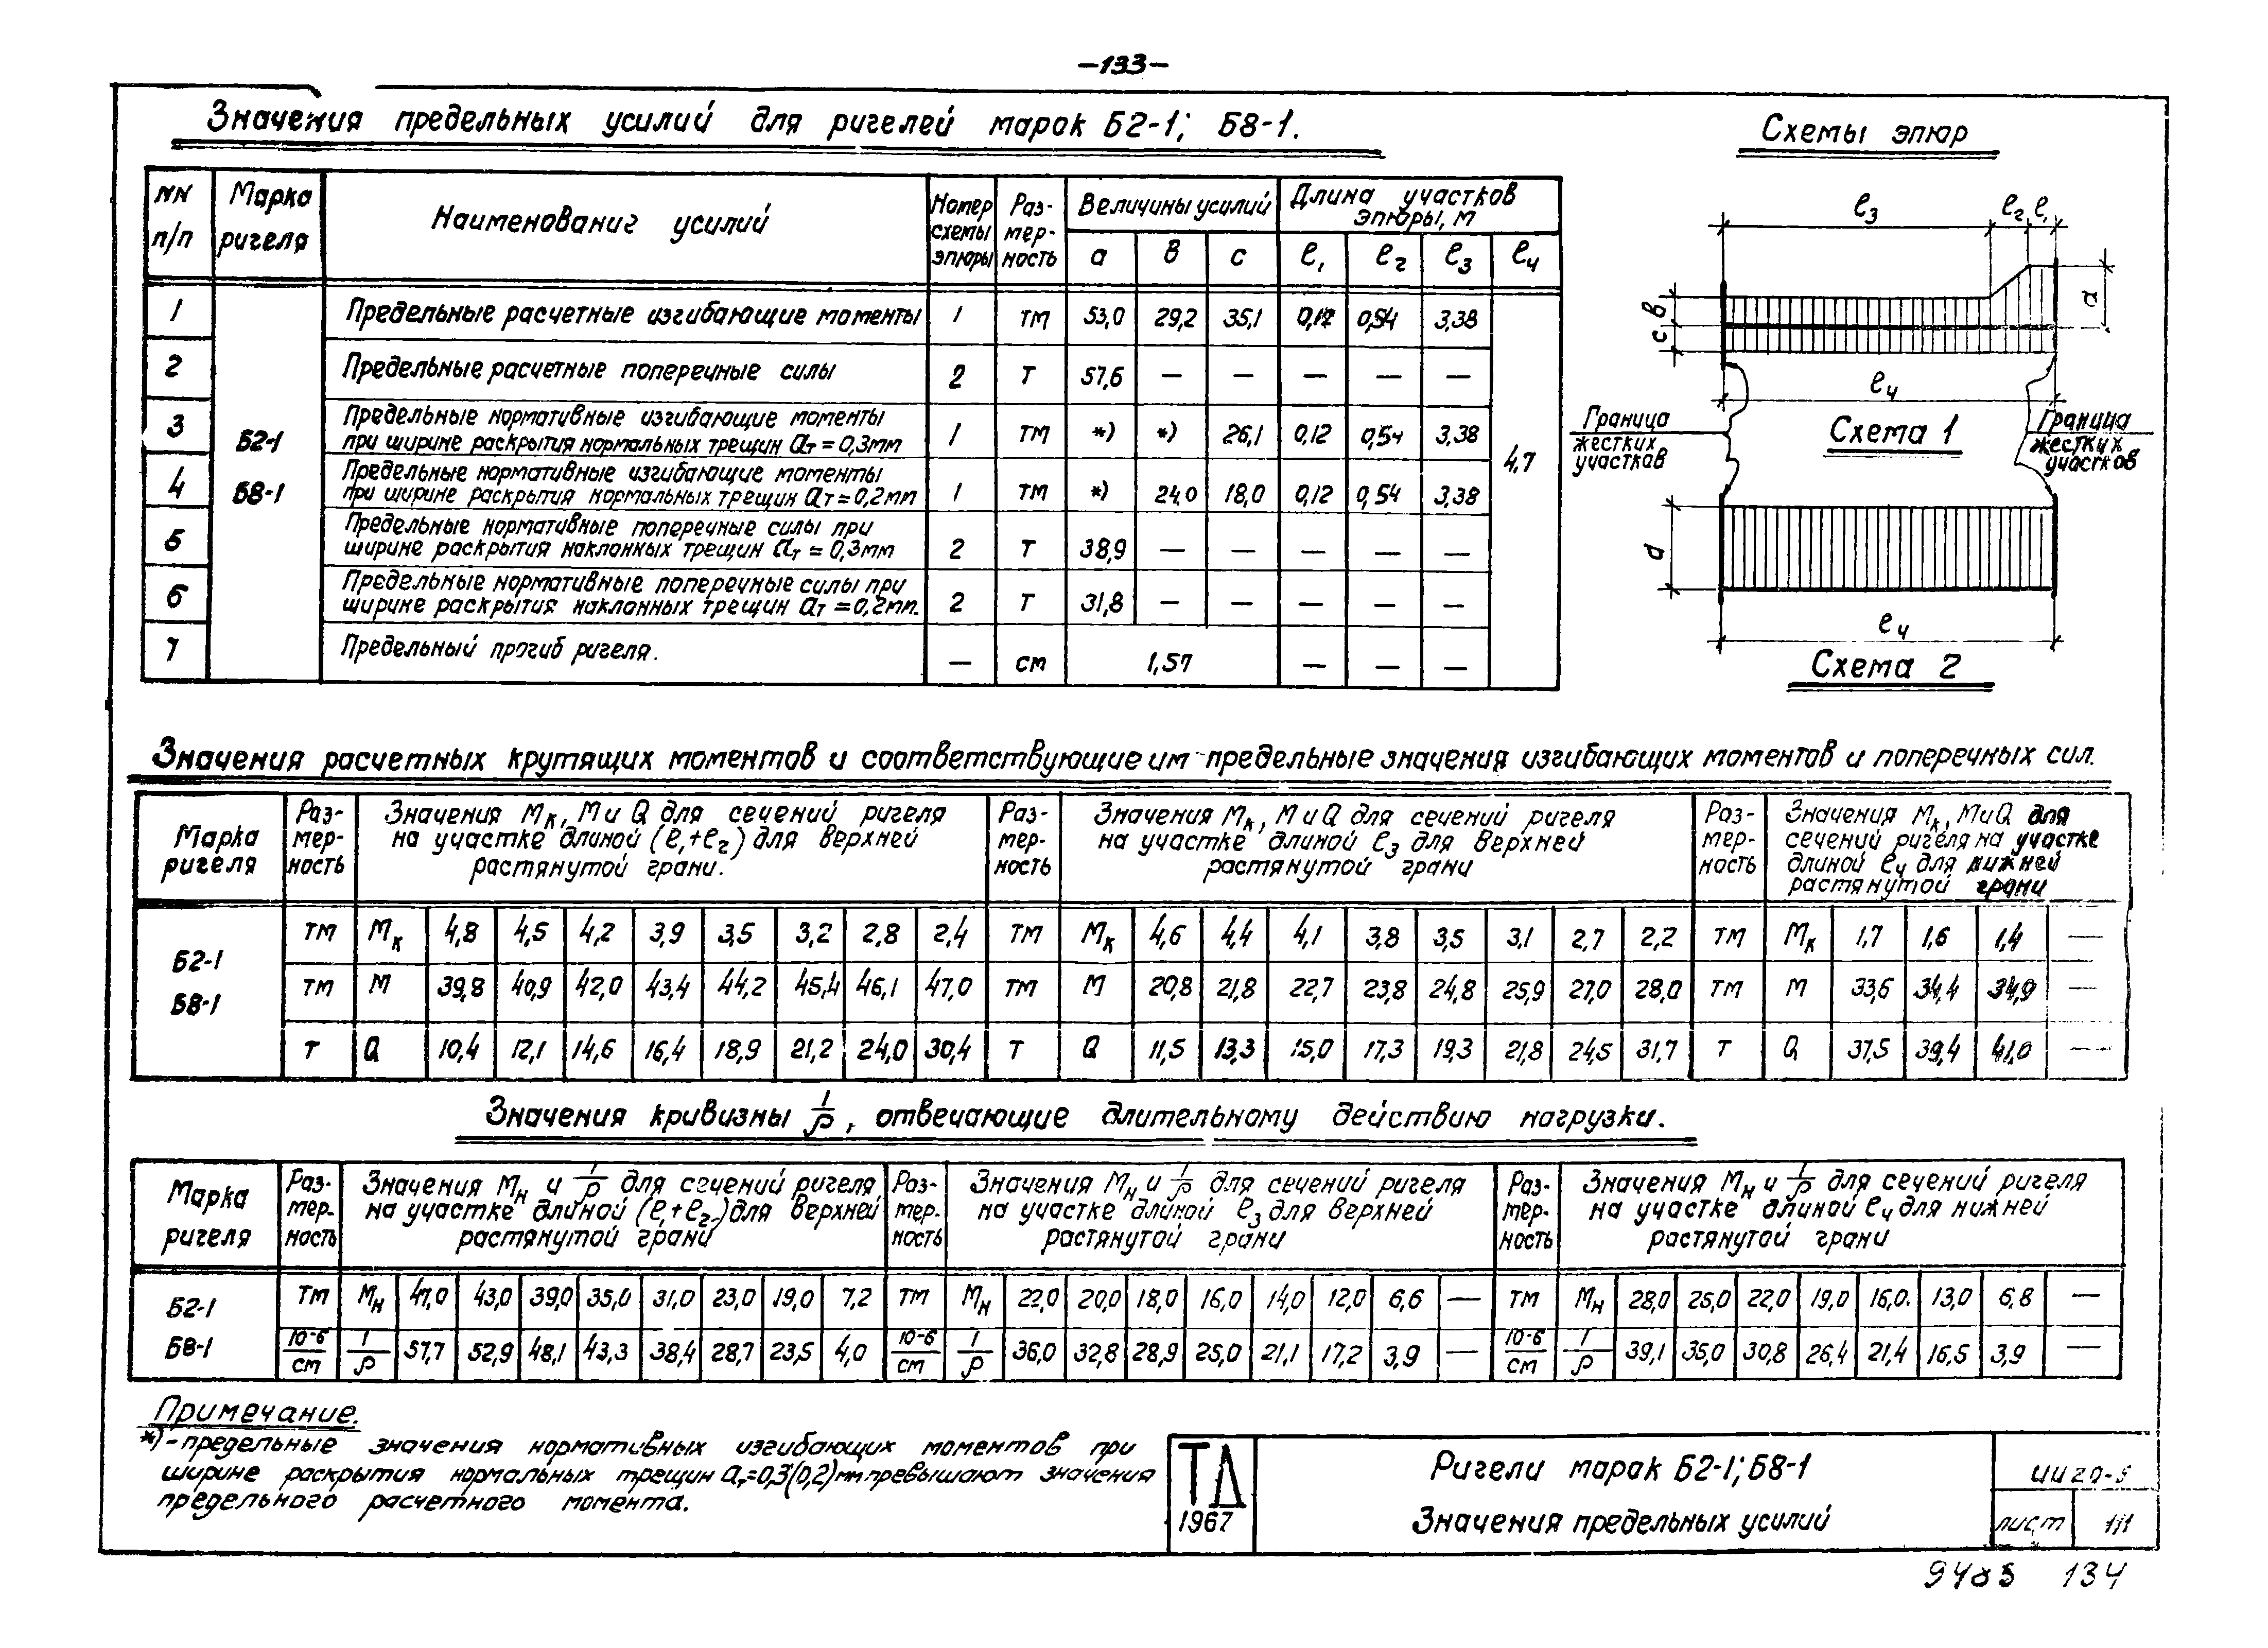 –133–
Значения предельных усилий для ригелей марок Б2-1; Б8-1.
Схемы эпюр
NN п/п | Марка ригеля | Наименование усилий | Номер схемы эпюры | Размерность | Величины усилий | Длина участков эпюры, м
a | в | с | ℓ₁ | ℓ₂ | ℓ₃ | ℓ₄
Б2-1 Б8-1
1 | Предельные расчетные изгибающие моменты | 1 | тм | 53,0 | 29,2 | 35,1 | 0,12 | 0,54 | 3,38
2 | Предельные расчетные поперечные силы | 2 | т | 57,6 | — | — | — | — | —
3 | Предельные нормативные изгибающие моменты
при ширине раскрытия нормальных трещин aт = 0,3мм | 1 | тм | *) | *) | 26,1 | 0,12 | 0,54 | 3,38
4 | Предельные нормативные изгибающие моменты
при ширине раскрытия нормальных трещин aт = 0,2мм | 1 | тм | *) | 24,0 | 18,0 | 0,12 | 0,54 | 3,38
4,7
5 | Предельные нормативные поперечные силы при
ширине раскрытия наклонных трещин aт = 0,3мм | 2 | т | 38,9 | — | — | — | — | —
6 | Предельные нормативные поперечные силы при
ширине раскрытия наклонных трещин aт = 0,2мм. | 2 | т | 31,8 | — | — | — | — | —
7 | Предельный прогиб ригеля. | — | см | 1,57 | — | — | —
ℓ₃ ℓ₂ ℓ₁
в
с
a
ℓ₄
Граница жестких участков
Схема 1
Граница жестких участков
d
ℓ₄
Схема 2
Значения расчетных крутящих моментов и соответствующие им предельные значения изгибающих моментов и поперечных сил.
Марка ригеля | Размерность | Значения Mк, M и Q для сечений ригеля на участке длиной (ℓ₁+ℓ₂) для верхней растянутой грани. | Размерность | Значения Mк, M и Q для сечений ригеля на участке длиной ℓ₃ для верхней растянутой грани | Размерность | Значения Mк, M и Q для сечений ригеля на участке длиной ℓ₄ для нижней растянутой грани
Б2-1 Б8-1
тм | Mк | 4,8 | 4,5 | 4,2 | 3,9 | 3,5 | 3,2 | 2,8 | 2,4 | тм | Mк | 4,6 | 4,4 | 4,1 | 3,8 | 3,5 | 3,1 | 2,7 | 2,2 | тм | Mк | 1,7 | 1,6 | 1,4 | —
тм | M | 39,8 | 40,9 | 42,0 | 43,4 | 44,2 | 45,4 | 46,1 | 47,0 | тм | M | 20,8 | 21,8 | 22,7 | 23,8 | 24,8 | 25,9 | 27,0 | 28,0 | тм | M | 33,6 | 34,4 | 34,9 | —
т | Q | 10,4 | 12,1 | 14,6 | 16,4 | 18,9 | 21,2 | 24,0 | 30,4 | т | Q | 11,5 | 13,3 | 15,0 | 17,3 | 19,3 | 21,8 | 24,5 | 31,7 | т | Q | 37,5 | 39,4 | 41,0 | —
Значения кривизны 1/ρ, отвечающие длительному действию нагрузки.
Марка ригеля | Размерность | Значения Mн и 1/ρ для сечений ригеля на участке длиной (ℓ₁+ℓ₂) для верхней растянутой грани | Размерность | Значения Mн и 1/ρ для сечений ригеля на участке длиной ℓ₃ для верхней растянутой грани | Размерность | Значения Mн и 1/ρ для сечений ригеля на участке длиной ℓ₄ для нижней растянутой грани
Б2-1 Б8-1
тм | Mн | 47,0 | 43,0 | 39,0 | 35,0 | 31,0 | 23,0 | 19,0 | 7,2 | тм | Mн | 22,0 | 20,0 | 18,0 | 16,0 | 14,0 | 12,0 | 6,6 | — | тм | Mн | 28,0 | 25,0 | 22,0 | 19,0 | 16,0. | 13,0 | 6,8 | —
10-6/см | 1/ρ | 57,7 | 52,9 | 48,1 | 43,3 | 38,4 | 28,7 | 23,5 | 4,0 | 10-6/см | 1/ρ | 36,0 | 32,8 | 28,9 | 25,0 | 21,1 | 17,2 | 3,9 | — | 10-6/см | 1/ρ | 39,1 | 35,0 | 30,8 | 26,4 | 21,4 | 16,5 | 3,9 | —
Примечание.
*) – предельные значения нормативных изгибающих моментов при
ширине раскрытия нормальных трещин aт=0,3(0,2)мм превышают значения
предельного расчетного момента.
ТД
1967
Ригели марок Б2-1; Б8-1
Значения предельных усилий
ИИ20-5
лист 111
9485 134